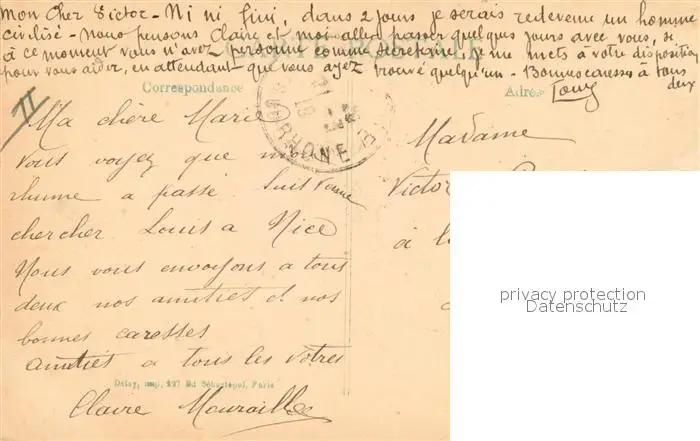 Mon cher Victor - Ni ni fini, dans 2 jours je serais redevenu un homme
civilisé - Nous pensons Claire et moi aller passer quelques jours avec vous, si
à ce moment vous n'avez personne comme secrétaire, je me mets à votre disposition
pour vous aider, en attendant que vous ayez trouvé quelqu'un - Bonnes caresses à tous
deux
CARTE POSTALE
Correspondance
Adresse
II
RHONE
Ma chère Marie
vous voyez que mon
rhume a passé. Suis venue
chercher Louis a Nice
Nous vous envoyons a tous
deux nos amitiés et nos
bonnes caresses
Amitiés a tous les vôtres
Claire
Madame
Victor
à
Delay, imp. 127 Bd Sébastopol, Paris
privacy protection
Datenschutz